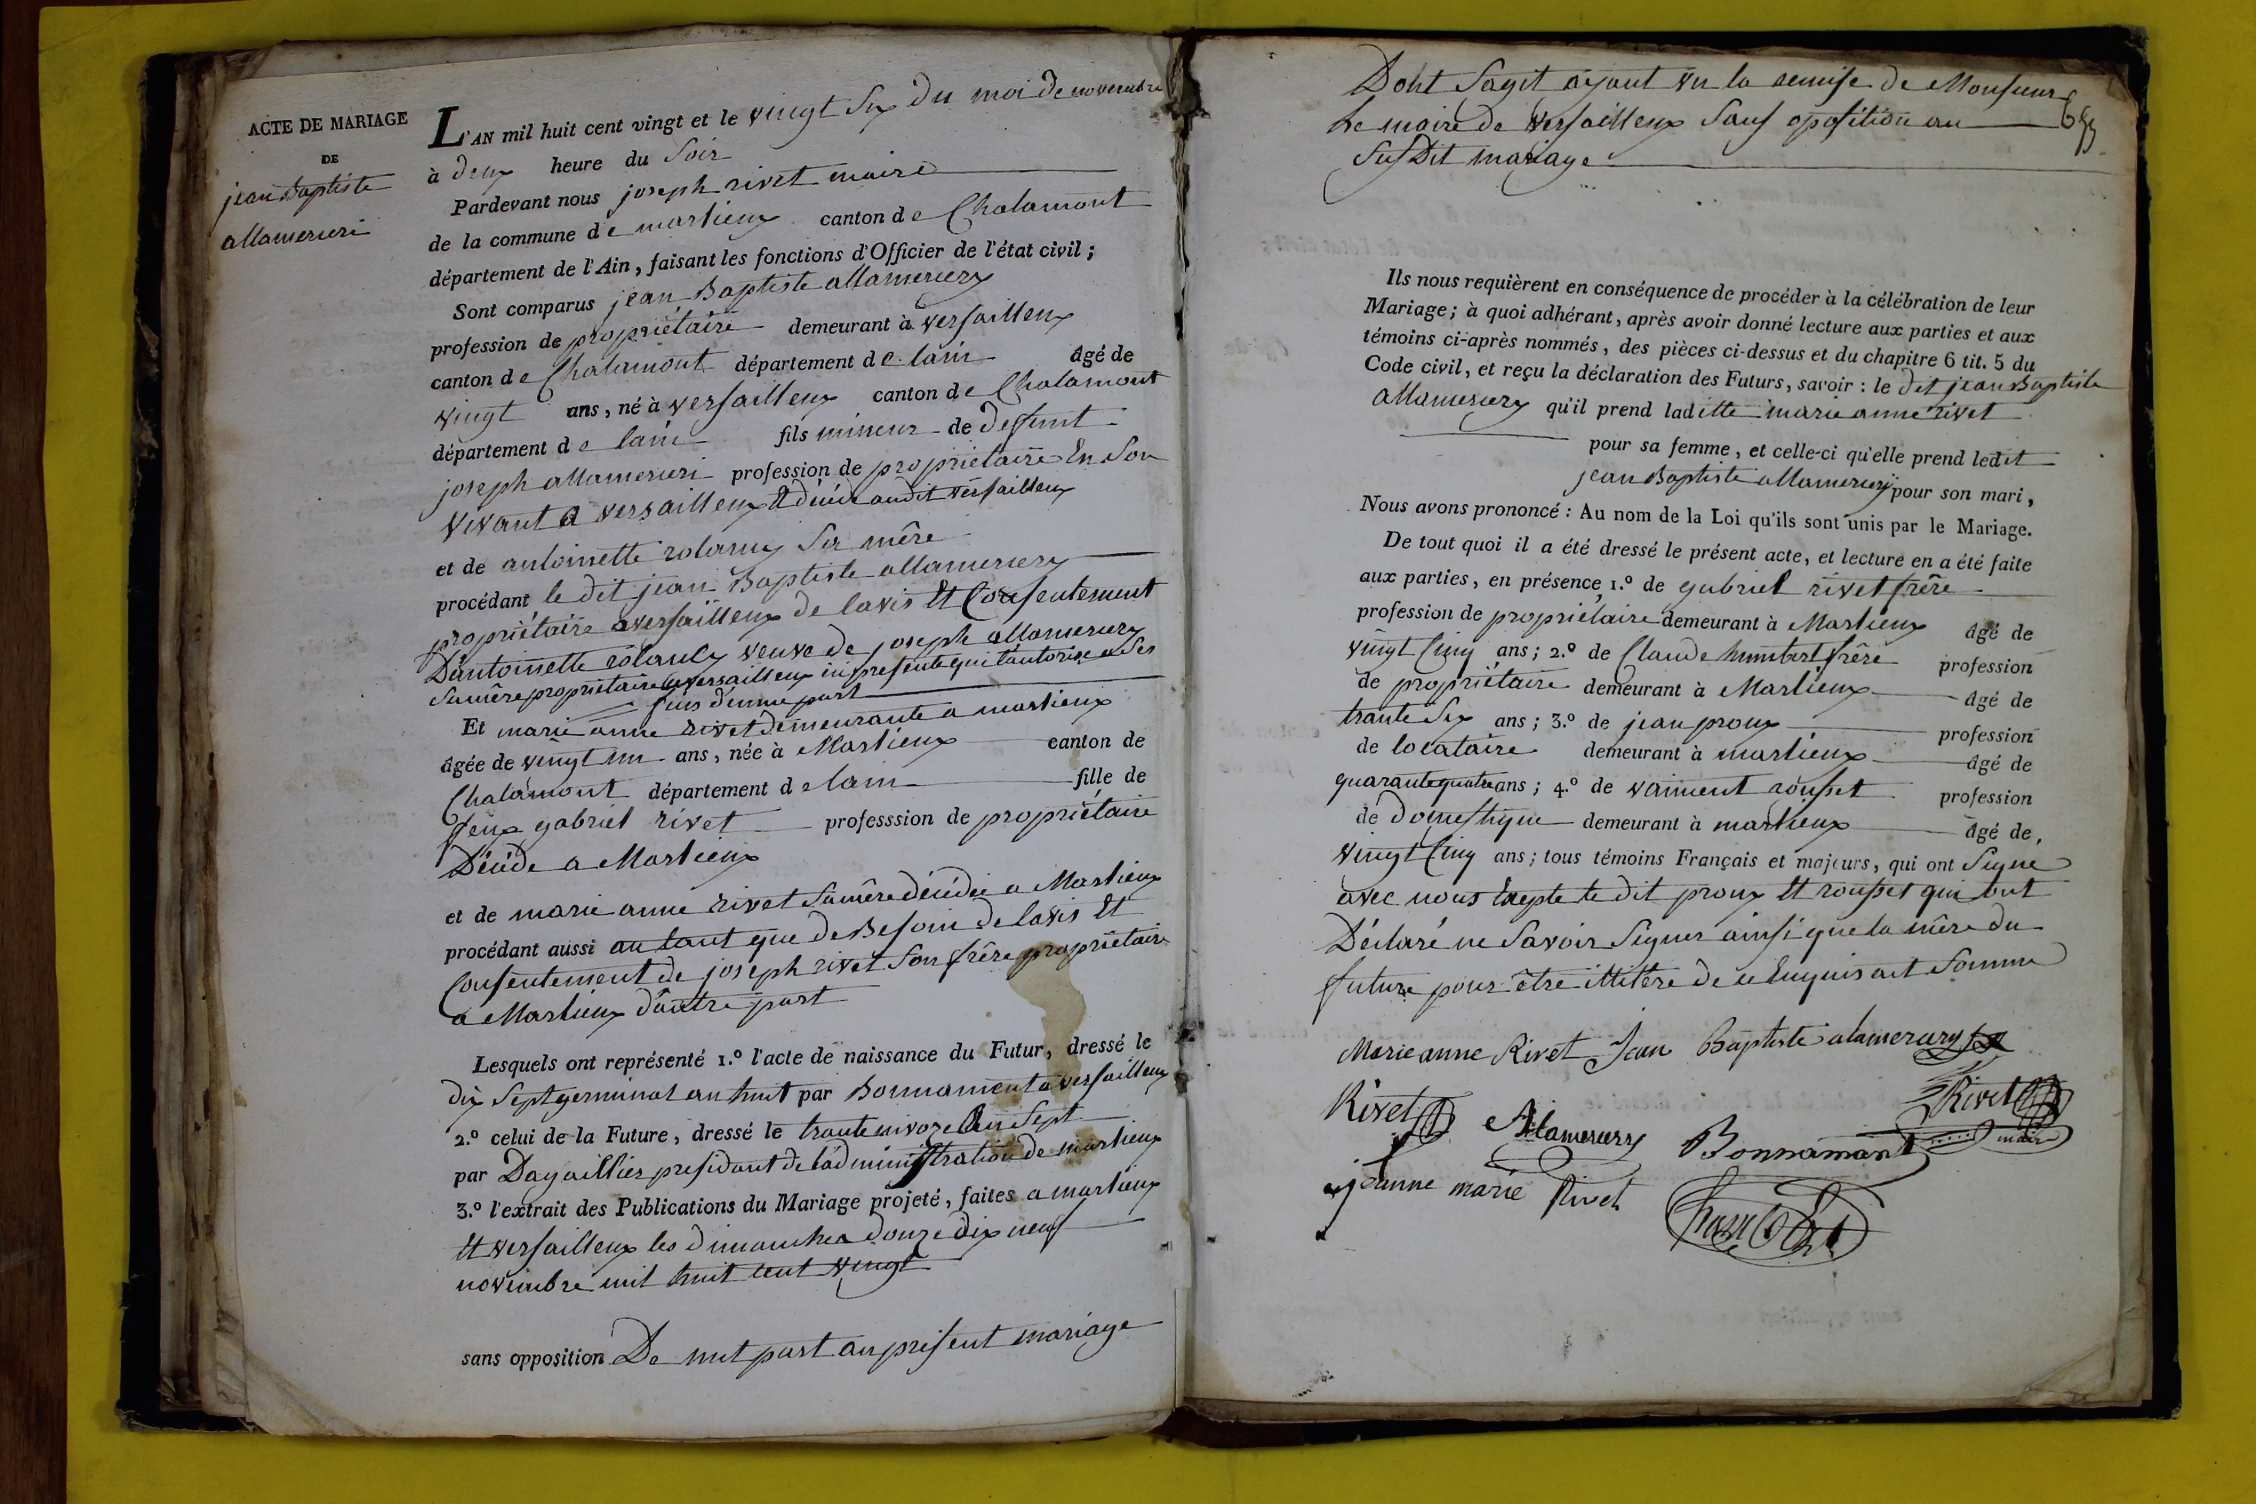 ACTE DE MARIAGE
DE
jean Baptiste
allamerieri
L'AN mil huit cent vingt et le vingt Six du moi de novembre
à deux heure du Soir
Pardevant nous joseph rivet maire
de la commune de marlieux canton de Chalamont
département de l'Ain, faisant les fonctions d'Officier de l'état civil;
Sont comparus jean Baptiste allamercery
profession de propriétaire demeurant à versailleux
canton de Chalamont département de lain âgé de
vingt ans, né à versailleux canton de Chalamont
département de lain fils mineur de deffunt
joseph allamerieri profession de propriétaire En Son
vivant a versailleux Et décédé audit versailleux
et de antoinette rolany Sa mère
procédant le dit jean Baptiste allamercery
propriétaire a versailleux de lavis Et Consentement
D'antoinette rolandy veuve de joseph allamercery
Sa mère propriétaire a versailleux ici presente qui l'autorise a Ses
fins d'unne part
Et marie anne rivet demeurante a marlieux
âgée de vingt un ans, née à Marlieux canton de
Chalamont département de lain fille de
feux gabriel rivet professsion de propriétaire
Décédé a Marlieux
et de marie anne rivet Sa mère décédée a Marlieux
procédant aussi au tant que de Besoin de lavis Et
Consentement de joseph rivet Son frère propriétaire
a Marlieux d'autre part
Lesquels ont représenté 1.º l'acte de naissance du Futur, dressé le
dix Sept germinal an huit par Bonnament a versailleux
2.º celui de la Future, dressé le trante nivoze an Sept
par Dagaillier presidant de l'administration de marlieux
3.º l'extrait des Publications du Mariage projeté, faites a marlieux
Et versailleux les dimanches douze dix neuf
novembre mil huit cent vingt
sans opposition De nut part au présent mariage
Dont Sagit ayant vu la remise de Monsieur
Le maire de versailleux Sauf oposition au
Susdit mariage
Ils nous requièrent en conséquence de procéder à la célébration de leur
Mariage; à quoi adhérant, après avoir donné lecture aux parties et aux
témoins ci-après nommés, des pièces ci-dessus et du chapitre 6 tit. 5 du
Code civil, et reçu la déclaration des Futurs, savoir: le dit jean Baptiste
allamercery qu'il prend laditte marie anne rivet
pour sa femme, et celle-ci qu'elle prend ledit
jean Baptiste allamercery pour son mari,
Nous avons prononcé: Au nom de la Loi qu'ils sont unis par le Mariage.
De tout quoi il a été dressé le présent acte, et lecture en a été faite
aux parties, en présence, 1.º de gabriel rivet frère
profession de propriétaire demeurant à Marlieux âgé de
vingt Cinq ans; 2.º de Claude humbert frère profession
de propriétaire demeurant à Marlieux âgé de
trante Six ans; 3.º de jean proux profession
de locataire demeurant à marlieux âgé de
quarante quatre ans; 4.º de vainient rousset profession
de Domestique demeurant à marlieux âgé de
vingt Cinq ans; tous témoins Français et majeurs, qui ont Signé
avec nous Excepté le dit proux Et rousset qui ont
Déclaré ne Savoir Signer ainsi que la mère du
future pour être illitère de ce Enquis ait Sommé
Marie anne Rivet Jean Baptiste alamercery
Rivet Alamercery Bonnamant Rivet
maire
jeanne marie Rivet